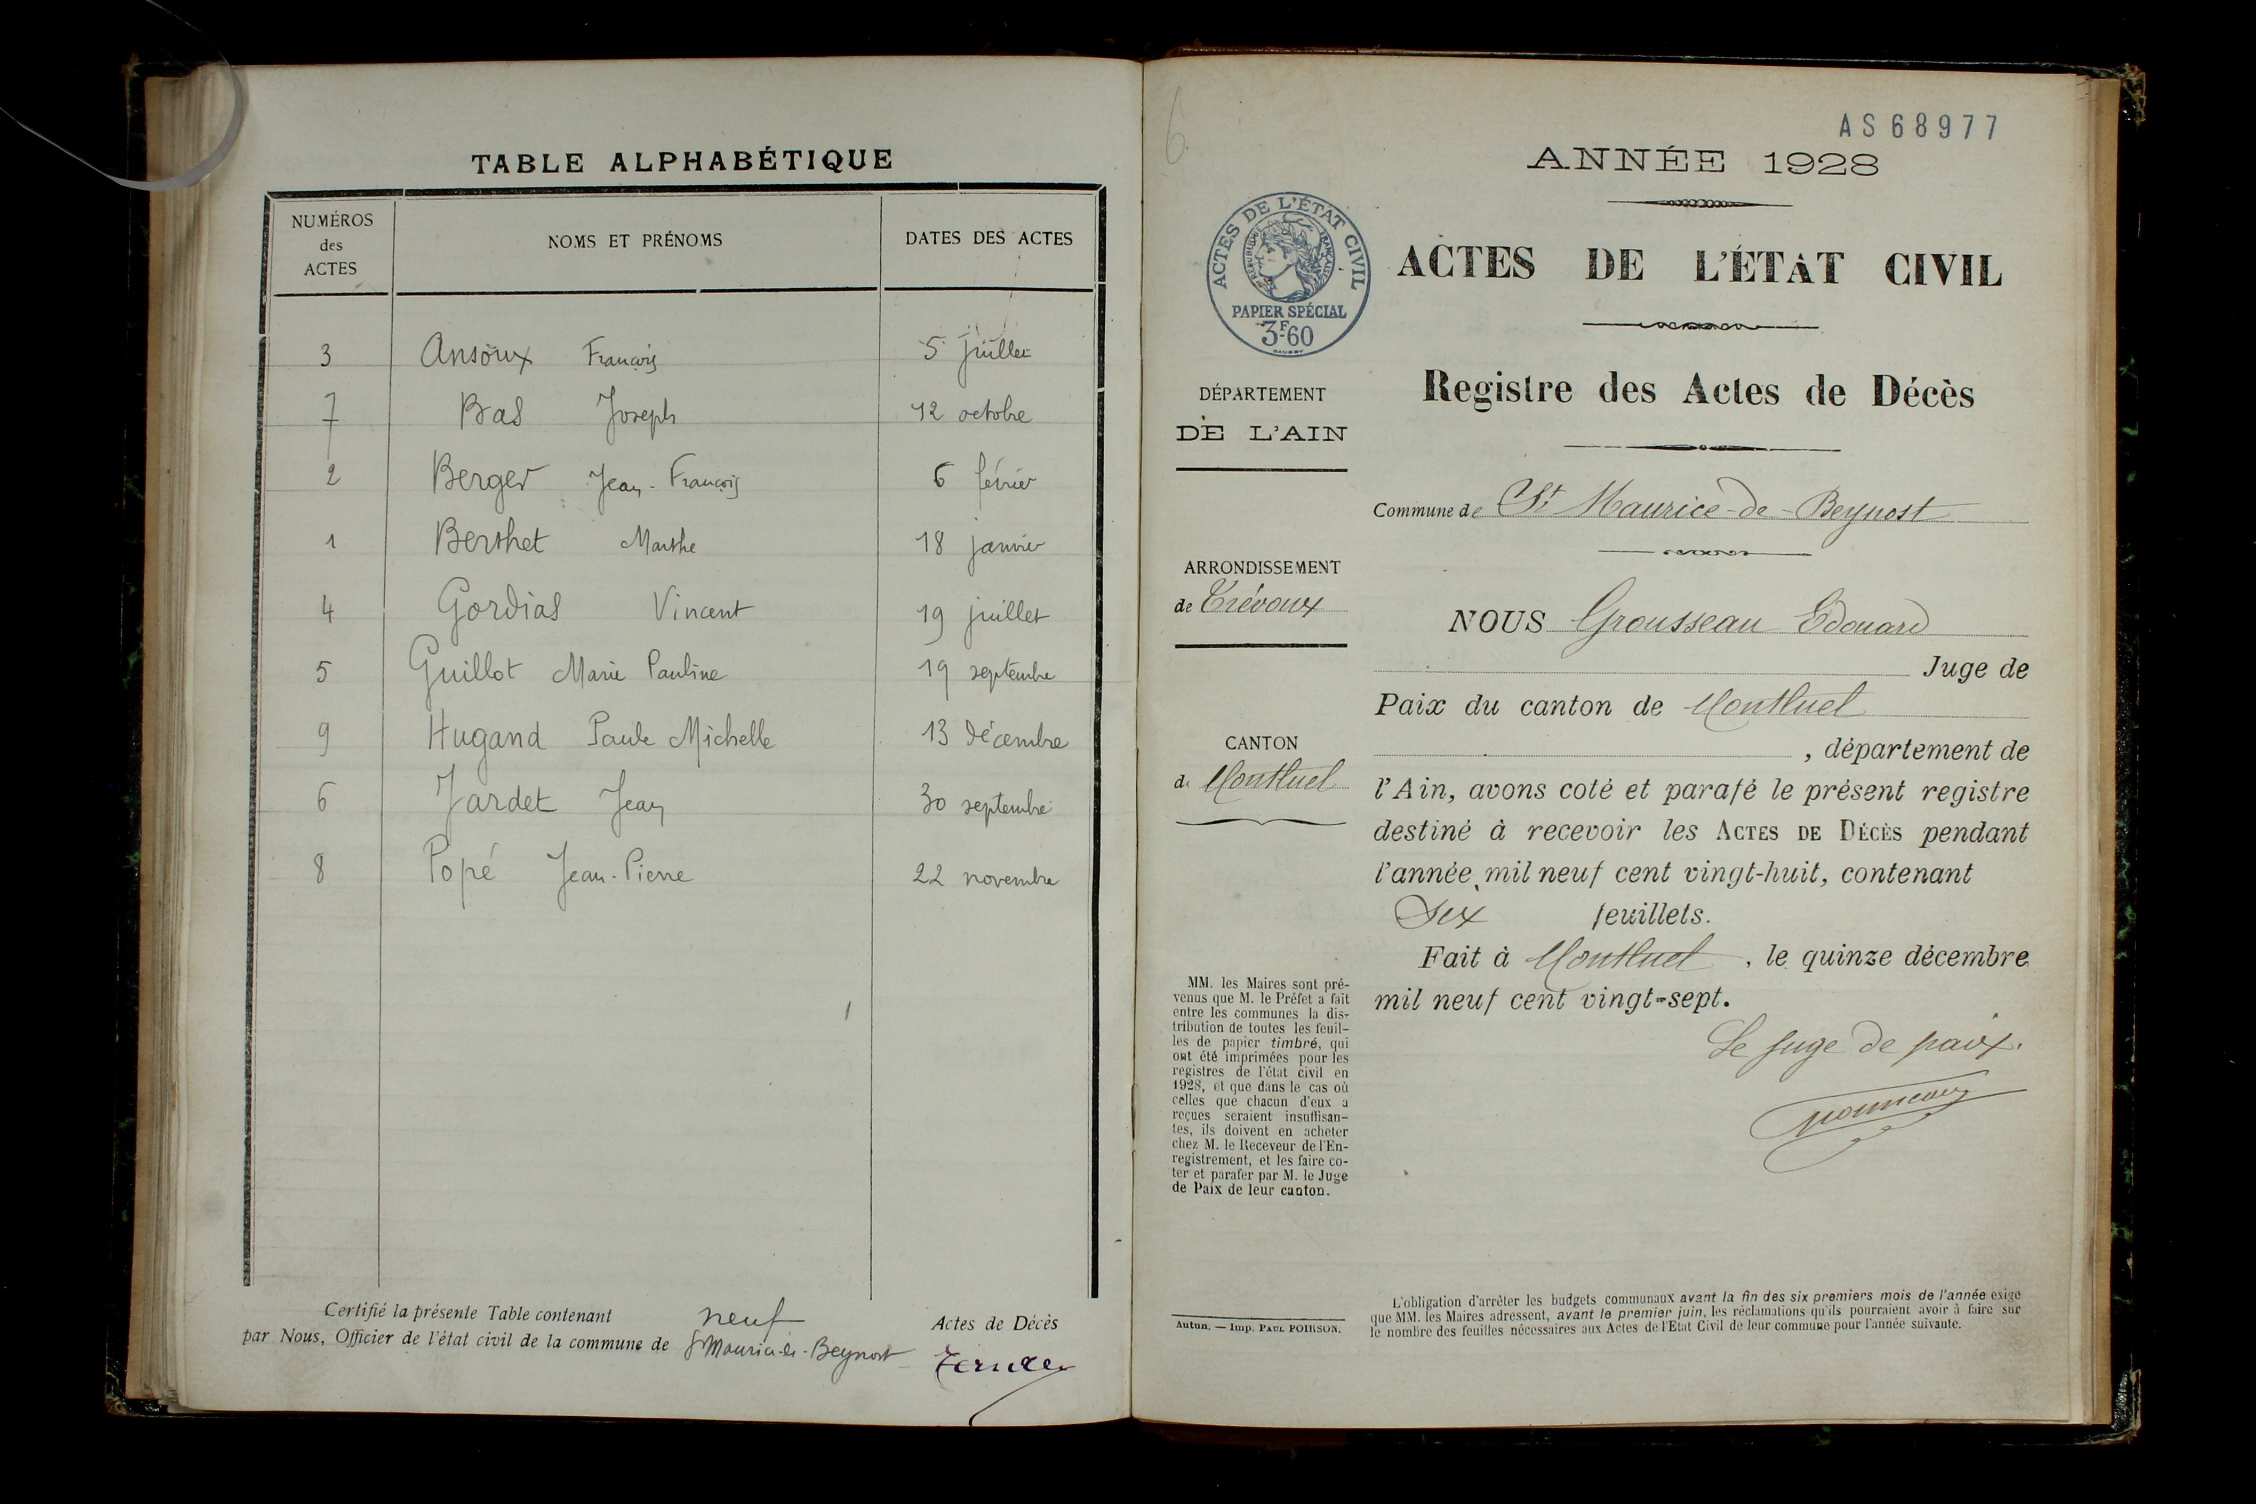 TABLE ALPHABÉTIQUE
NUMÉROS des ACTES NOMS ET PRÉNOMS DATES DES ACTES
3 Ansoux François 5 juillet
7 Bas Joseph 12 octobre
2 Berger Jean-François 6 février
1 Berthet Marthe 18 janvier
4 Gordias Vincent 19 juillet
5 Guillot Marie Pauline 19 septembre
9 Hugand Paule Michelle 13 décembre
6 Jardet Jean 30 septembre
8 Popé Jean-Pierre 22 novembre
Certifié la présente Table contenant neuf Actes de Décès
par Nous, Officier de l'état civil de la commune de St Maurice-de-Beynost
6
AS68977
ANNÉE 1928
ACTES DE L'ÉTAT CIVIL
RÉPUBLIQUE FRANÇAISE
PAPIER SPÉCIAL
3F60
ACTES DE L'ÉTAT CIVIL
Registre des Actes de Décès
DÉPARTEMENT
DE L'AIN
Commune de St Maurice-de-Beynost
ARRONDISSEMENT
de Trévoux
NOUS Grousseau Edouard
Juge de
Paix du canton de Montluel
, département de
CANTON
de Montluel
l'Ain, avons coté et parafé le présent registre
destiné à recevoir les ACTES DE DÉCÈS pendant
l'année mil neuf cent vingt-huit, contenant
Six feuillets.
Fait à Montluel, le quinze décembre
mil neuf cent vingt-sept.
Le Juge de paix.
MM. les Maires sont pré-
venus que M. le Préfet a fait
entre les communes la dis-
tribution de toutes les feuil-
les de papier timbré, qui
ont été imprimées pour les
registres de l'état civil en
1928, et que dans le cas où
celles que chacun d'eux a
reçues seraient insuffisan-
tes, ils doivent en acheter
chez M. le Receveur de l'En-
registrement, et les faire co-
ter et parafer par M. le Juge
de Paix de leur canton.
Autun. — Imp. PAUL POIRSON.
L'obligation d'arrêter les budgets communaux avant la fin des six premiers mois de l'année exige
que MM. les Maires adressent, avant le premier juin, les réclamations qu'ils pourraient avoir à faire sur
le nombre des feuilles nécessaires aux Actes de l'Etat Civil de leur commune pour l'année suivante.